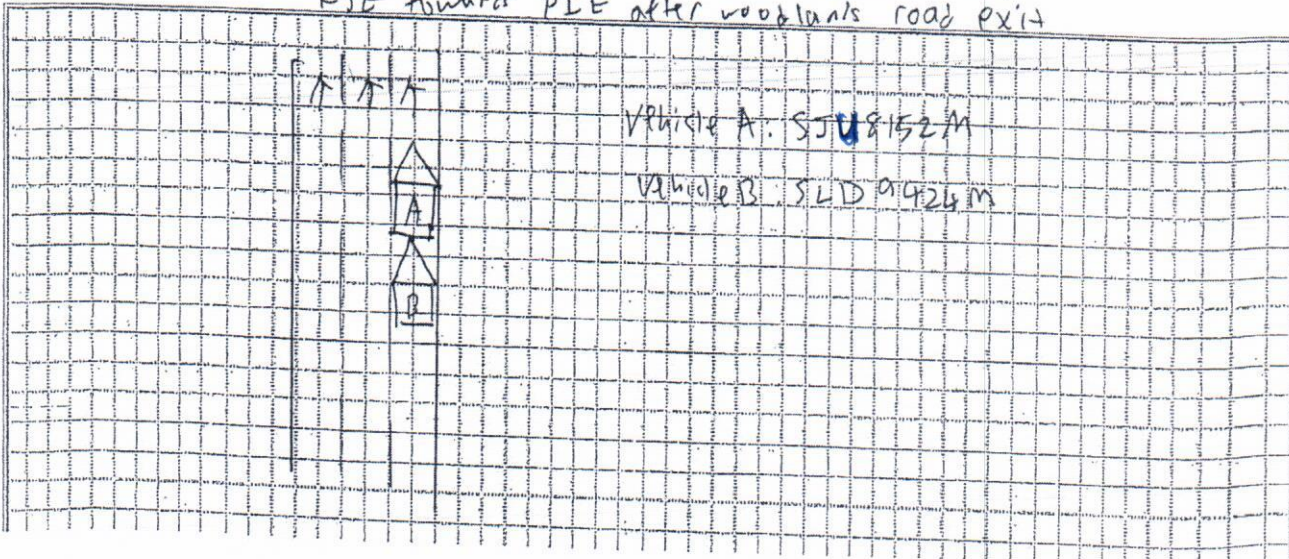 towards PIE after woodlands road exit
Vehicle A: SJU8152M
A
Vehicle B: SLD9424M
B